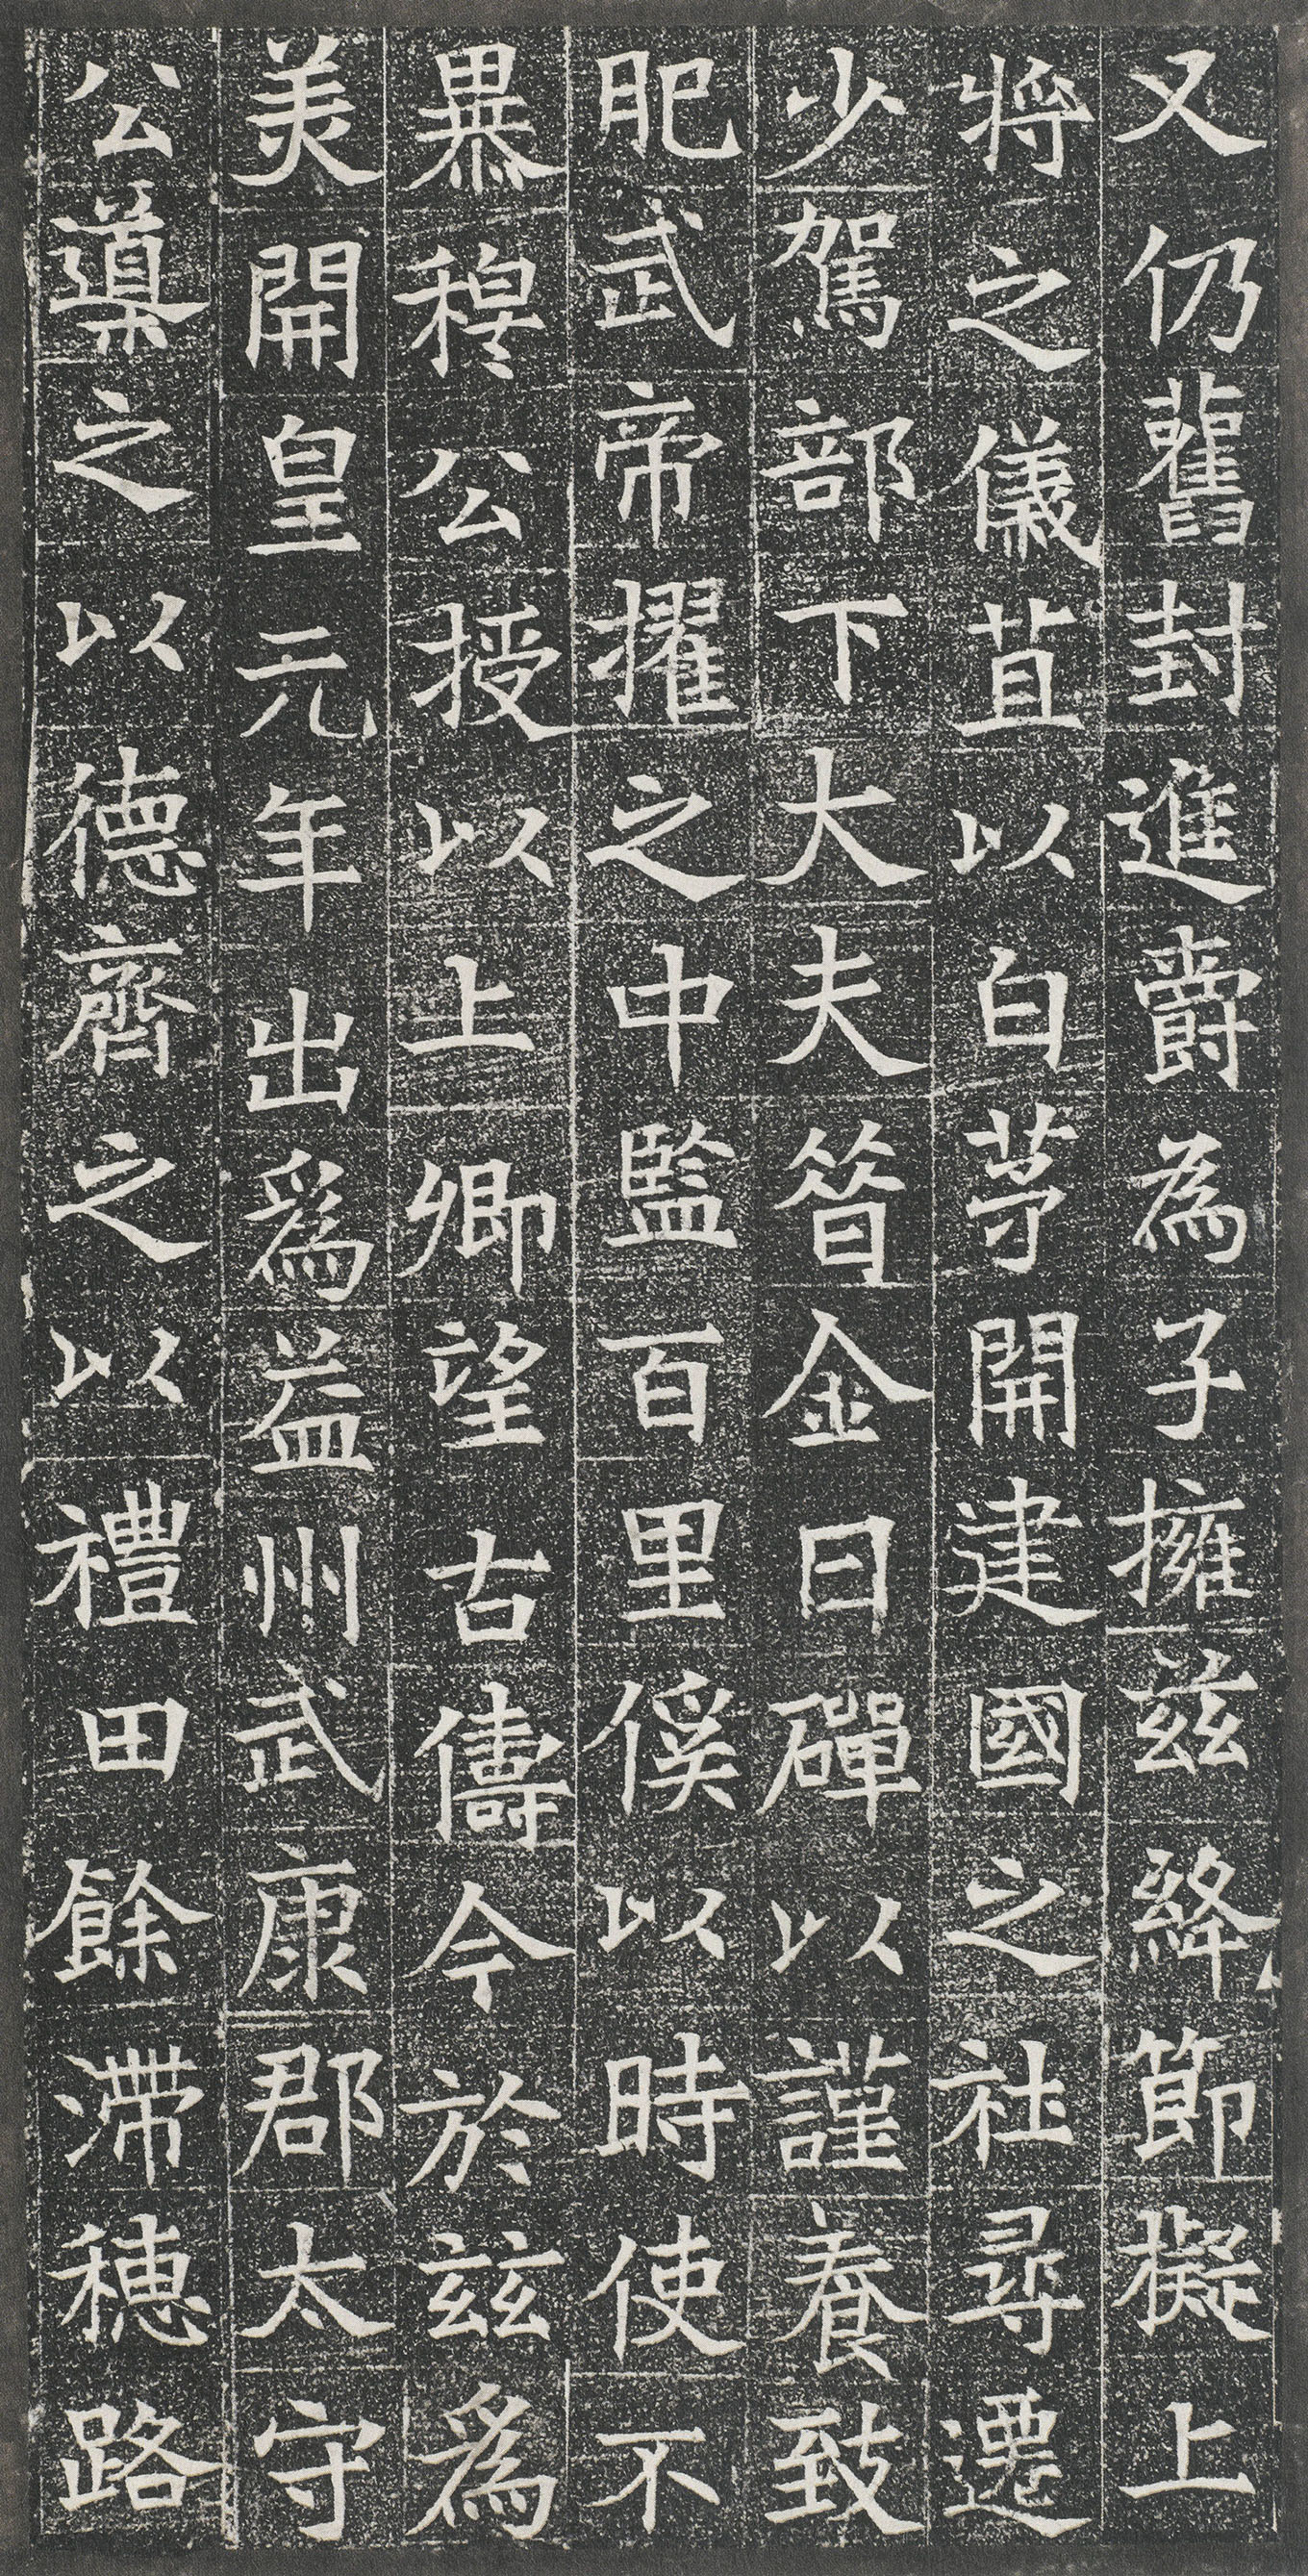 又仍舊封進爵為子擁茲絳節擬上
將之儀苴以白茅開建國之社尋遷
少駕部下大夫㫺金日磾以謹養致
肥武帝擢之中監百里傒以時使不
暴穆公授以上卿望古儔今於茲爲
美開皇元年出爲益州武康郡太守
公導之以德齊之以禮田餘滯穗路